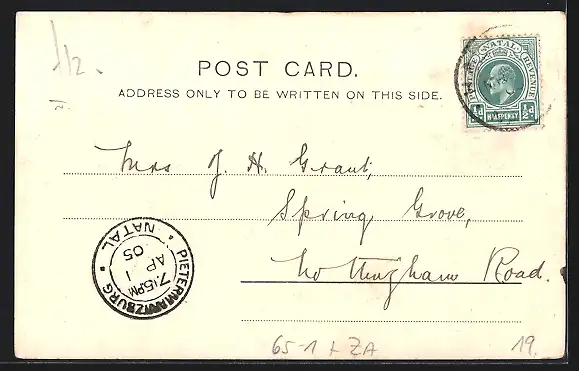 1/2.
POST CARD.
ADDRESS ONLY TO BE WRITTEN ON THIS SIDE.
POSTAGE NATAL REVENUE
½d HALFPENNY ½d.
Mrs J. H. Grant,
Spring Grove,
Nottingham Road.
PIETERMARITZBURG NATAL
7.15PM
AP 1
05
65-1 + ZA
19.